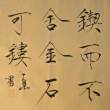 鍥而不
舍金石
可鏤